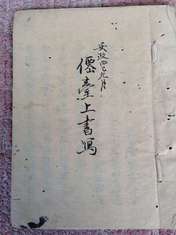 安政四巳九月
僊臺上書寫